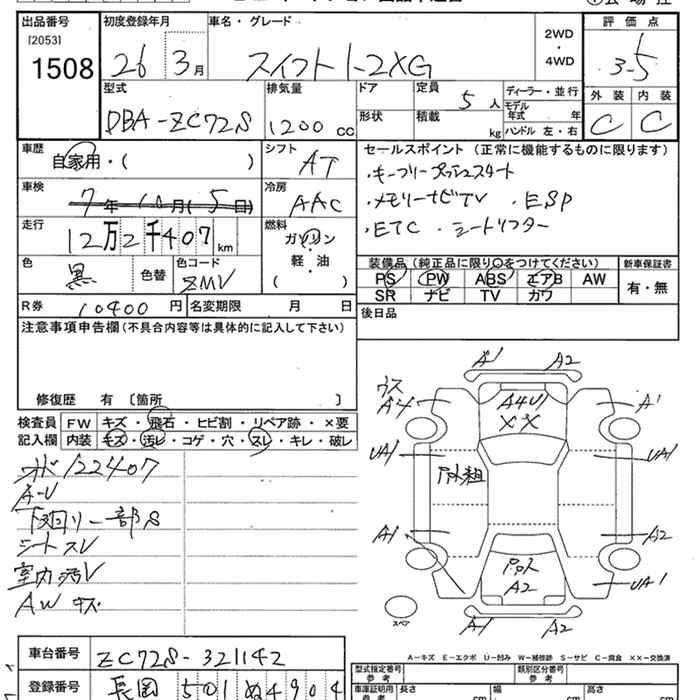 出品番号 初度登録年月 車名・グレード 2WD・4WD 評価点
[2053]
1508 26 3月 スイフト 1-2XG 3-5
型式 排気量 ドア 定員 5人 ディーラー・並行 外装 内装
DBA-ZC72S 1200cc 形状 積載 kg モデル年式 年 C C
ハンドル 左・右
車歴 自家用・( ) シフト AT セールスポイント(正常に機能するものに限ります)
・キーフリープッシュスタート
車検 7年10月(5日) 冷房 AAC ・メモリーナビTV ・ESP
走行 12万2千407km 燃料 ガソリン・軽・油 ( ) ・ETC ・シートリフター
色 黒 色替 色コード ZMV 装備品(純正品に限り○をつけてください) 新車保証書
PS PW ABS エアB AW 有・無
SR ナビ TV カワ
R券 10400円 名変期限 月 日 後日品
注意事項申告欄(不具合内容等は具体的に記入して下さい)
修復歴 有 〔箇所 〕
検査員記入欄 FW キズ・飛石・ヒビ割・リペア跡・×要
内装 キズ・汚レ・コゲ・穴・スレ・キレ・破レ
122407
A-U
下回リ一部S
シートスレ
室内汚レ
AW キズ
A1 A2
ウス
A4 A4U1 A1
XX
UA1 UA1
A1 A2
A2 UA1
A1 A2
スペア
A-キズ E-エクボ U-凹み W-補修跡 S-サビ C-腐食 XX-交換済
車台番号 ZC72S-321142 型式指定番号 参考 類別区分番号 参考
登録番号 長岡 501 ぬ 4904 車庫証明用 参考 長さ cm 幅 cm 高さ cm